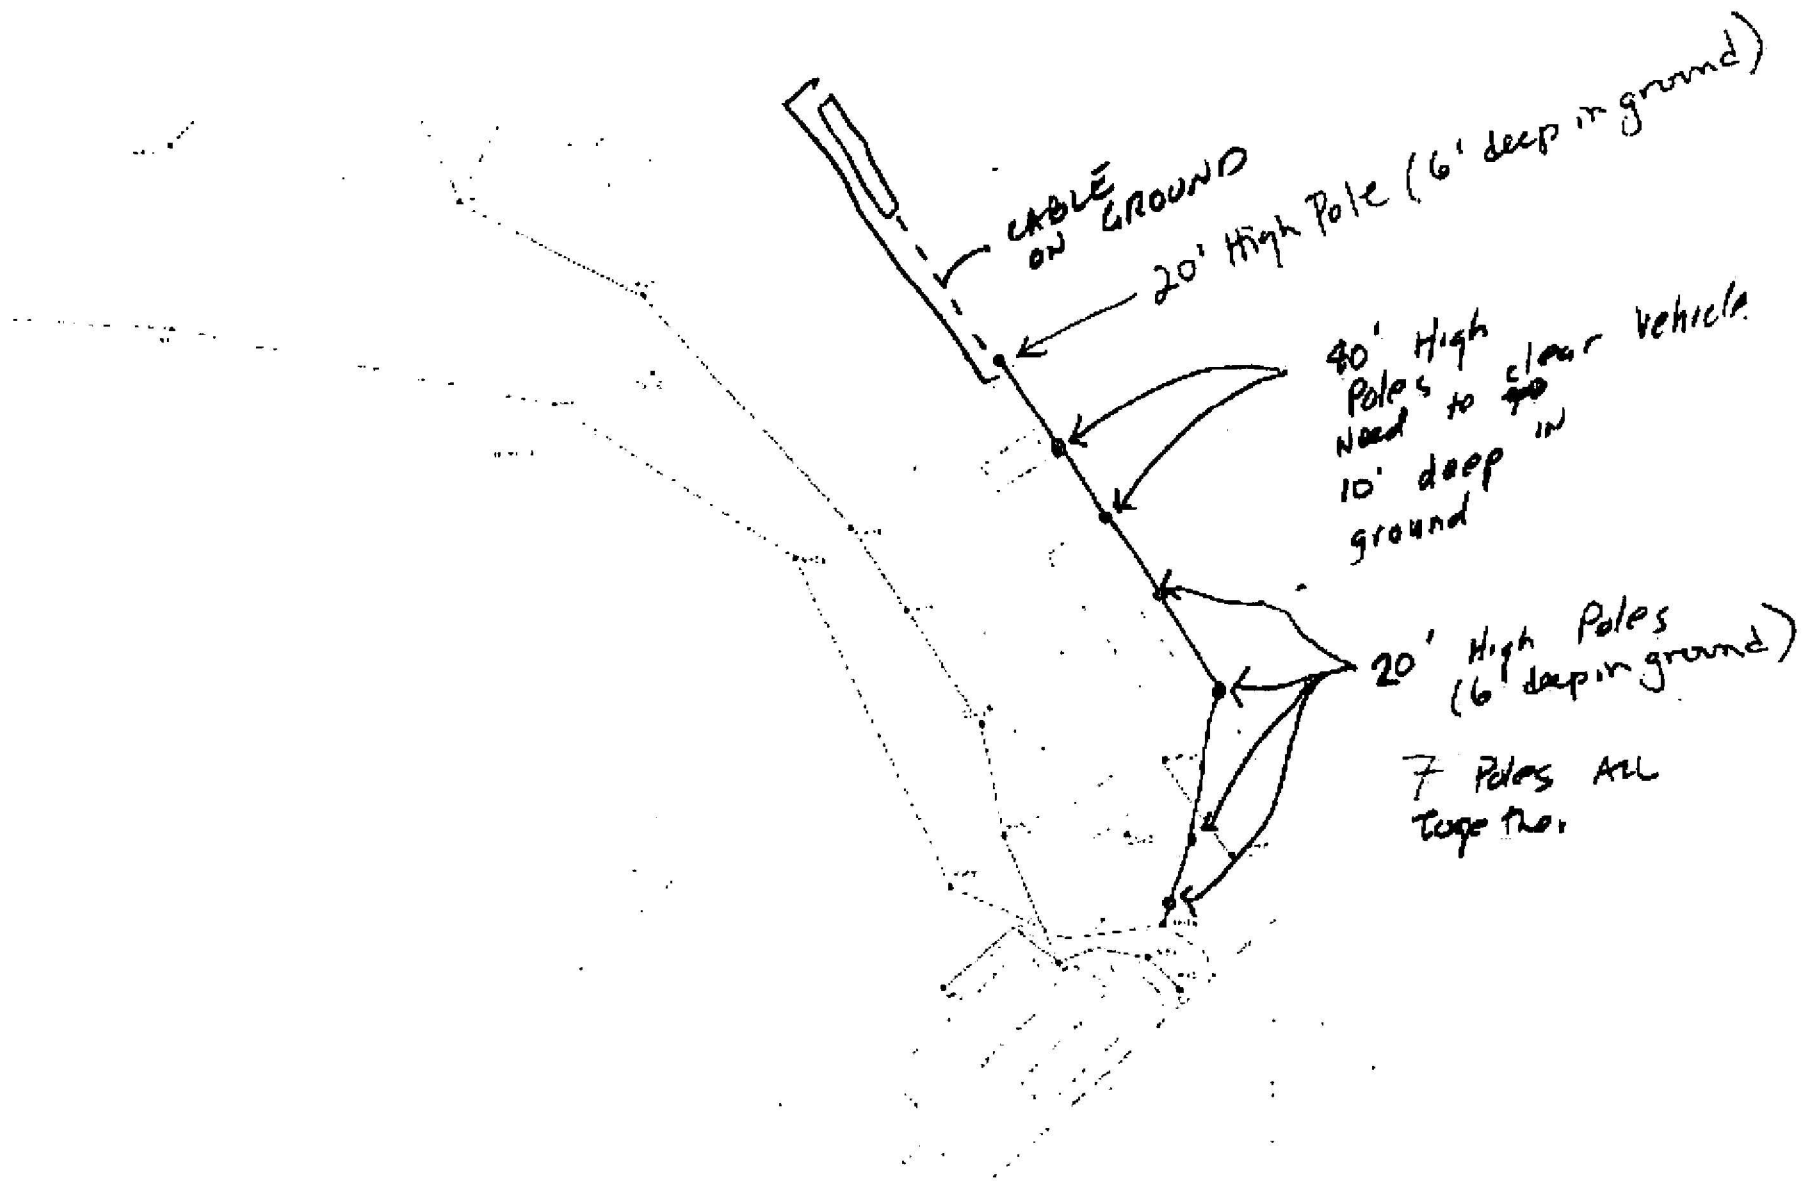 CABLE
ON GROUND
20' High Pole (6' deep in ground)
40' High
Poles
Need to clear Vehicle
10' deep IN
ground
20' High Poles
(6' deep in ground)
7 Poles ALL
Together